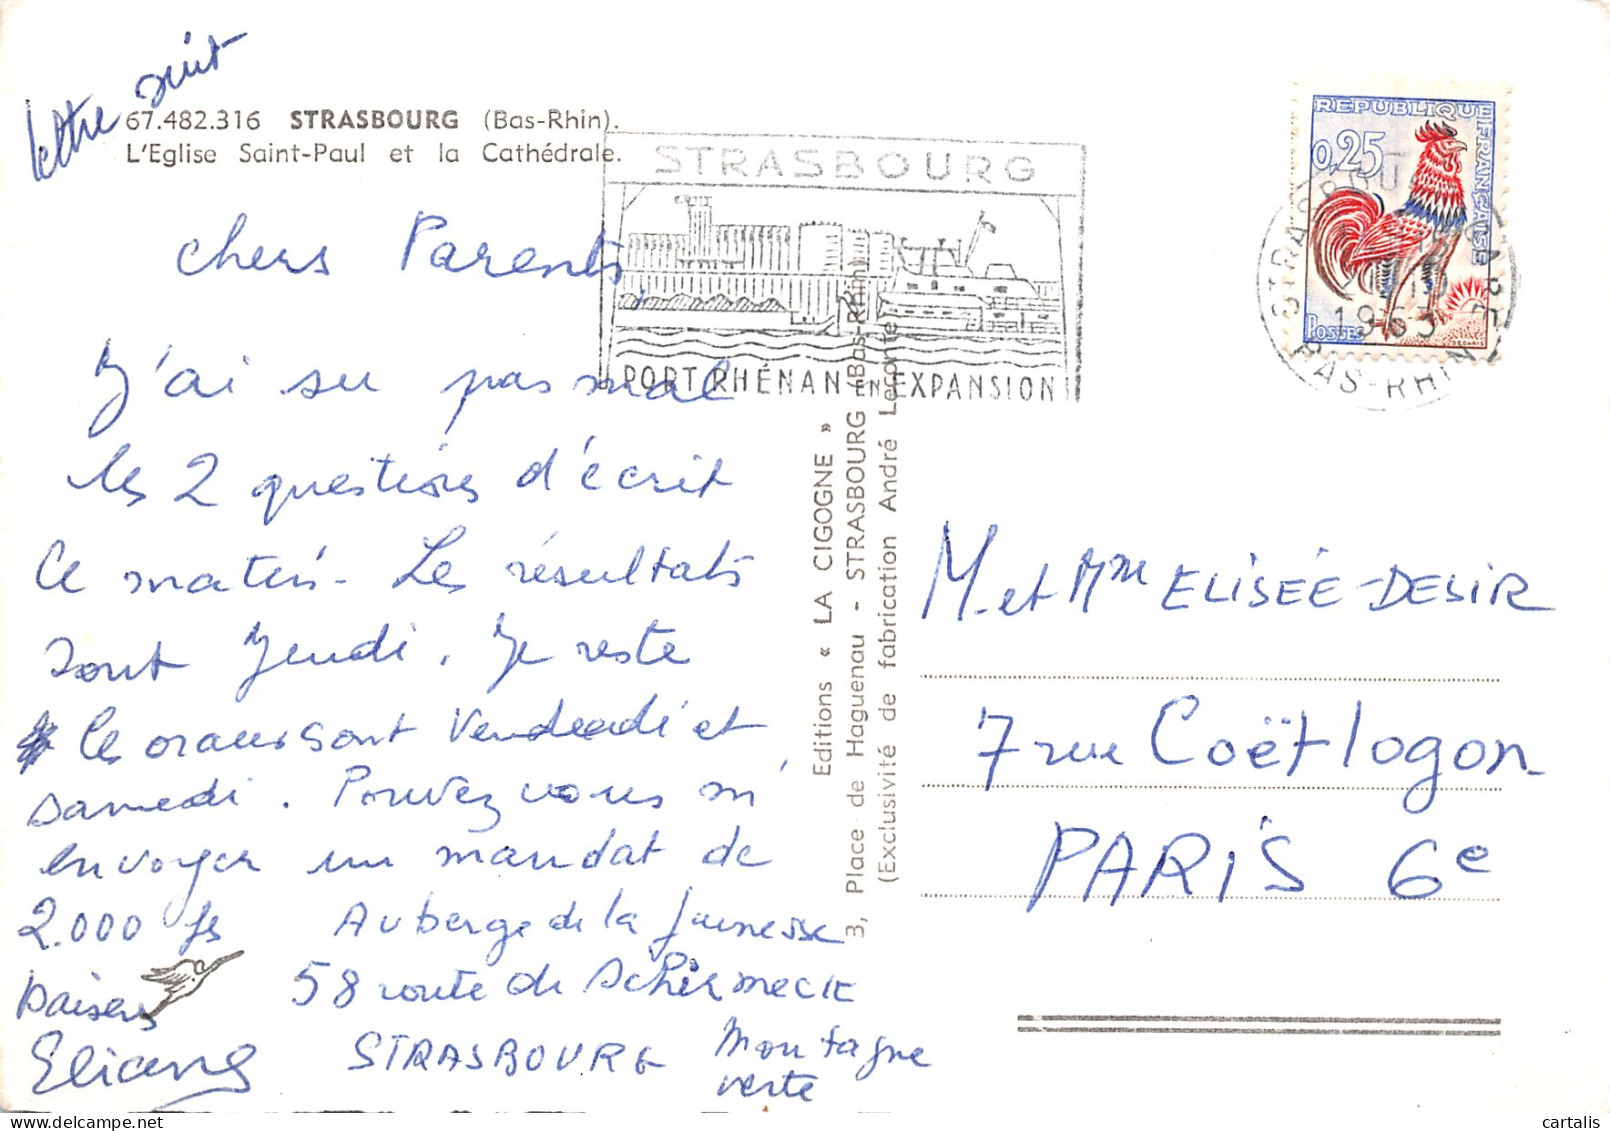 lettre suit
67.482.316 STRASBOURG (Bas-Rhin).
L'Eglise Saint-Paul et la Cathédrale.
STRASBOURG
PORT RHÉNAN EN EXPANSION
REPUBLIQUE FRANÇAISE
0,25
POSTES
DECARIS
STRASBOURG GARE
1963
BAS-RHIN
chers Parents,
J'ai su pas mal
les 2 questions d'écrit
ce matin - Les résultats
sont Jeudi. Je reste
ce oraux sont Vendredi et
samedi. Pouvez vous m'
envoyer un mandat de
2.000 frs
Auberge de la Jeunesse
58 route de Schirmeck
STRASBOURG
Montagne
verte
baisers
Eliane
Editions « LA CIGOGNE »
3, Place de Haguenau - STRASBOURG (Bas-Rhin)
(Exclusivité de fabrication André Leconte
M. et Mme ELISÉE-DESIR
7 rue Coëtlogon
PARIS 6e
cartalis